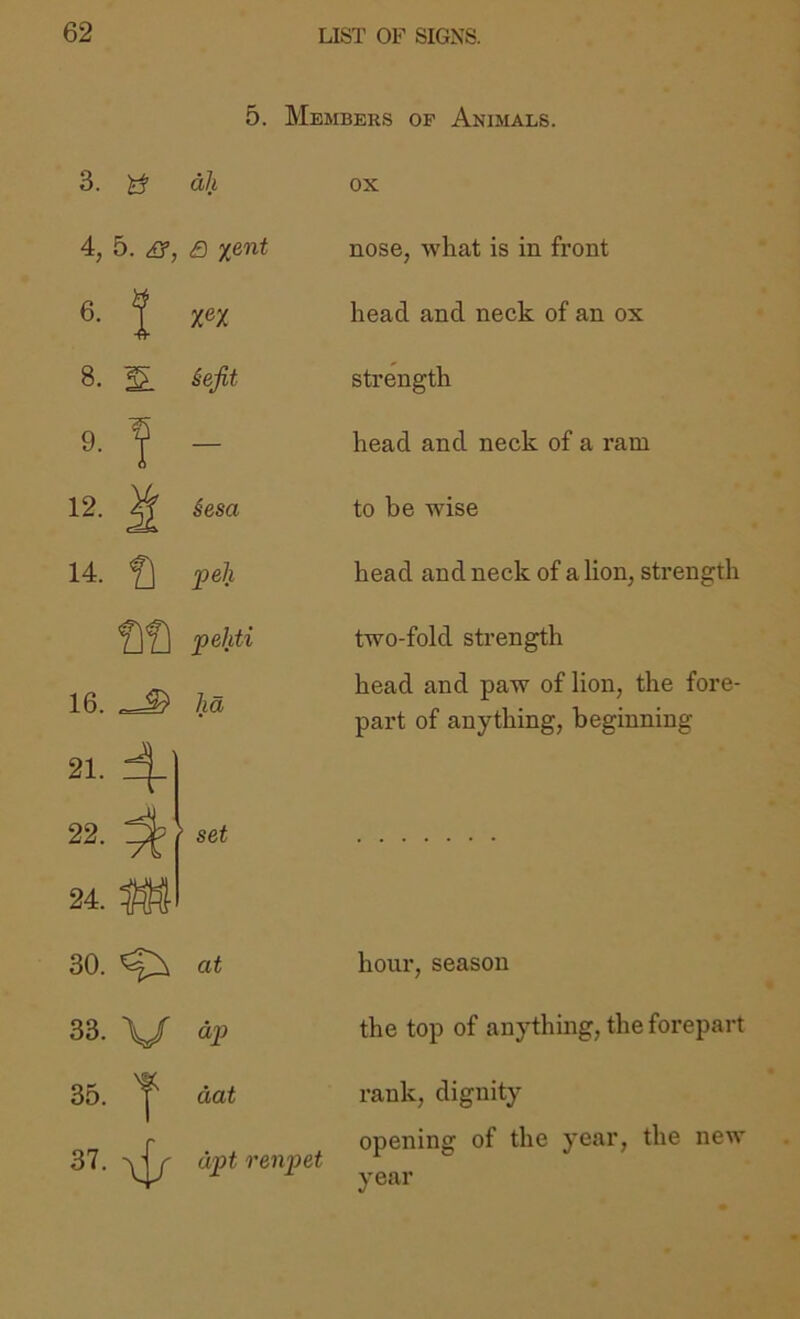 62 LIST OF SIGNS.
5. MEMBERS OF ANIMALS.
3. 𓃾 ȧḥ ox
4, 5. 𓄀, 𓄂 χent nose, what is in front
6. χeχ head and neck of an ox
8. śefit strength
9. — head and neck of a ram
12. śesa to be wise
14. peḥ head and neck of a lion, strength
peḥti two-fold strength
16. 𓄂 ḥā head and paw of lion, the fore-
part of anything, beginning
21.
22. set .......
24.
30. at hour, season
33. 𓄋 ȧp the top of anything, the forepart
35. ȧat rank, dignity
37. ȧpt renpet opening of the year, the new
year